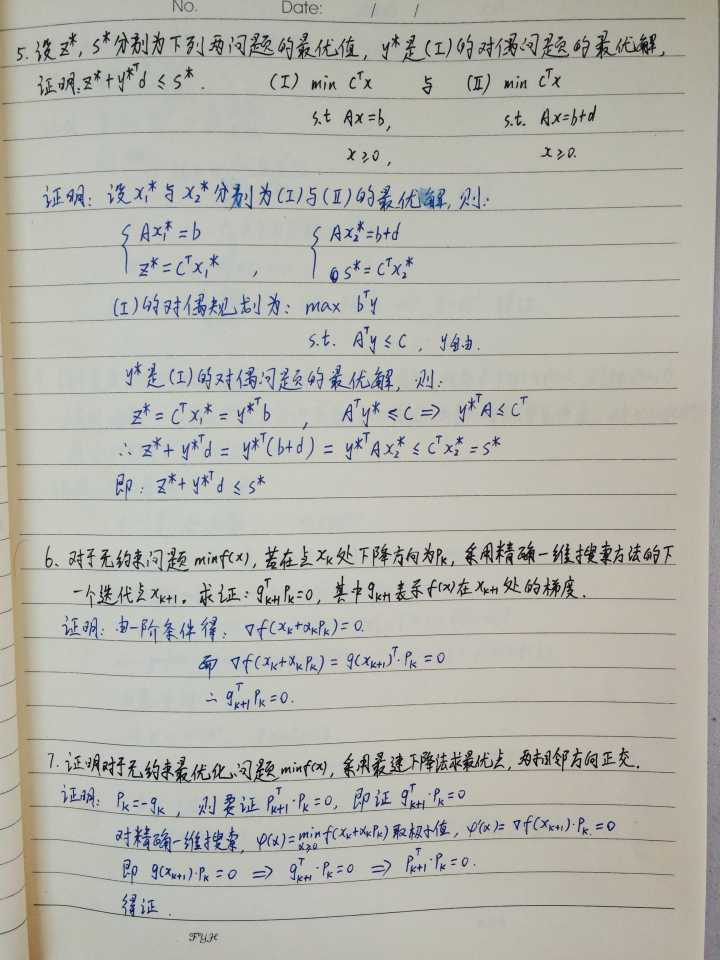 No. Date: / /
5. 设 z*, s* 分别为下列两问题的最优值, y* 是(I)的对偶问题的最优解,
证明: z*+y*ᵀd ≤ s*. (I) min cᵀx 与 (II) min cᵀx
s.t. Ax=b, s.t. Ax=b+d
x≥0, x≥0.
证明: 设 x₁* 与 x₂* 分别为(I)与(II)的最优解, 则:
{ Ax₁*=b { Ax₂*=b+d
z*=Cᵀx₁* , s*=Cᵀx₂*
(I)的对偶规划为: max bᵀy
s.t. Aᵀy≤C, y自由.
y*是(I)的对偶问题的最优解, 则:
z*=Cᵀx₁*=y*ᵀb , Aᵀy*≤C ⇒ y*ᵀA≤Cᵀ
∴ z*+y*ᵀd = y*ᵀ(b+d) = y*ᵀAx₂* ≤ Cᵀx₂* = s*
即: z*+y*ᵀd ≤ s*
6、对于无约束问题 minf(x), 若在点 xₖ 处下降方向为Pₖ, 采用精确一维搜索方法的下
一个迭代点 xₖ₊₁。求证: gᵀₖ₊₁Pₖ=0, 其中 gₖ₊₁ 表示 f(x)在 xₖ₊₁ 处的梯度.
证明: 由一阶条件得: ∇f(xₖ+αₖPₖ)=0.
而 ∇f(xₖ+xₖPₖ) = g(xₖ₊₁)ᵀ·Pₖ=0
∴ gᵀₖ₊₁Pₖ=0.
7. 证明对于无约束最优化问题 minf(x), 采用最速下降法求最优点, 两相邻方向正交.
证明: Pₖ=-gₖ, 则要证 Pᵀₖ₊₁·Pₖ=0, 即证 gᵀₖ₊₁·Pₖ=0
对精确一维搜索, φ(α)=min f(xₖ+αₖPₖ)取极小值, φ'(α)=∇f(xₖ₊₁)·Pₖ=0
α≥0
即 g(xₖ₊₁)·Pₖ=0 ⇒ gᵀₖ₊₁·Pₖ=0 ⇒ Pᵀₖ₊₁·Pₖ=0.
得证.